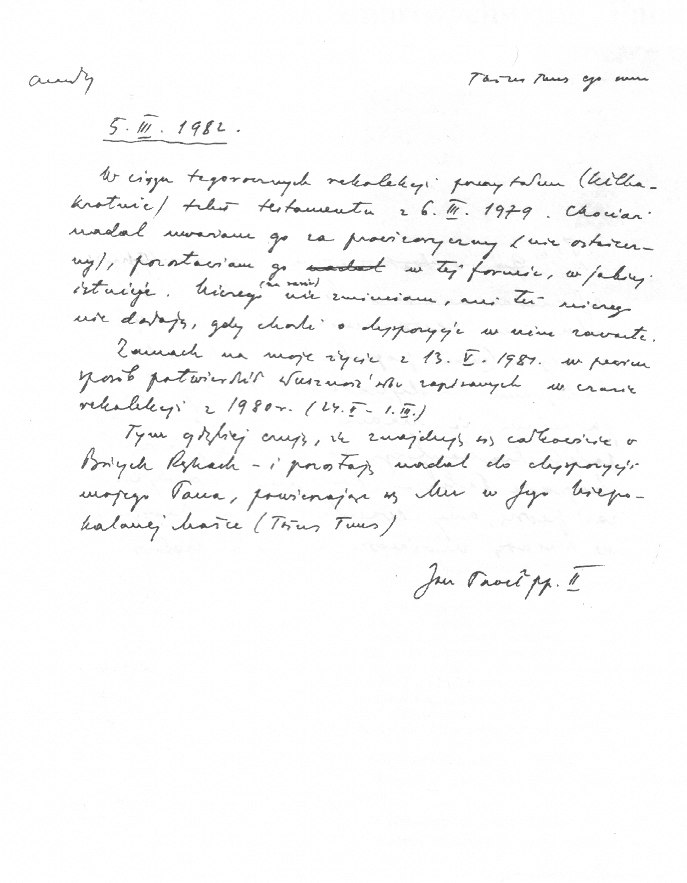 Totus Tuus ego sum
5. III. 1982.
W ciągu tegorocznych rekolekcji przeczytałem (kilka-
krotnie) tekst testamentu z 6. III. 1979. Chociaż
nadal uważam go za prowizoryczny (nie ostatecz-
ny), pozostawiam go nadal w tej formie, w jakiej
istnieje. Niczego (na razie) nie zmieniam, ani też niczego
nie dodaję, gdy chodzi o dyspozycje w nim zawarte.
Zamach na moje życie z 13. V. 1981. w pewien
sposób potwierdził słuszność słów zapisanych w czasie
rekolekcji z 1980 r. (24. II – 1. III.)
Tym głębiej czuję, że znajduję się całkowicie w
Bożych Rękach – i pozostaję nadal do dyspozycji
mojego Pana, powierzając się Mu w Jego Niepo-
kalanej Matce (Totus Tuus)
Jan Paweł pp. II